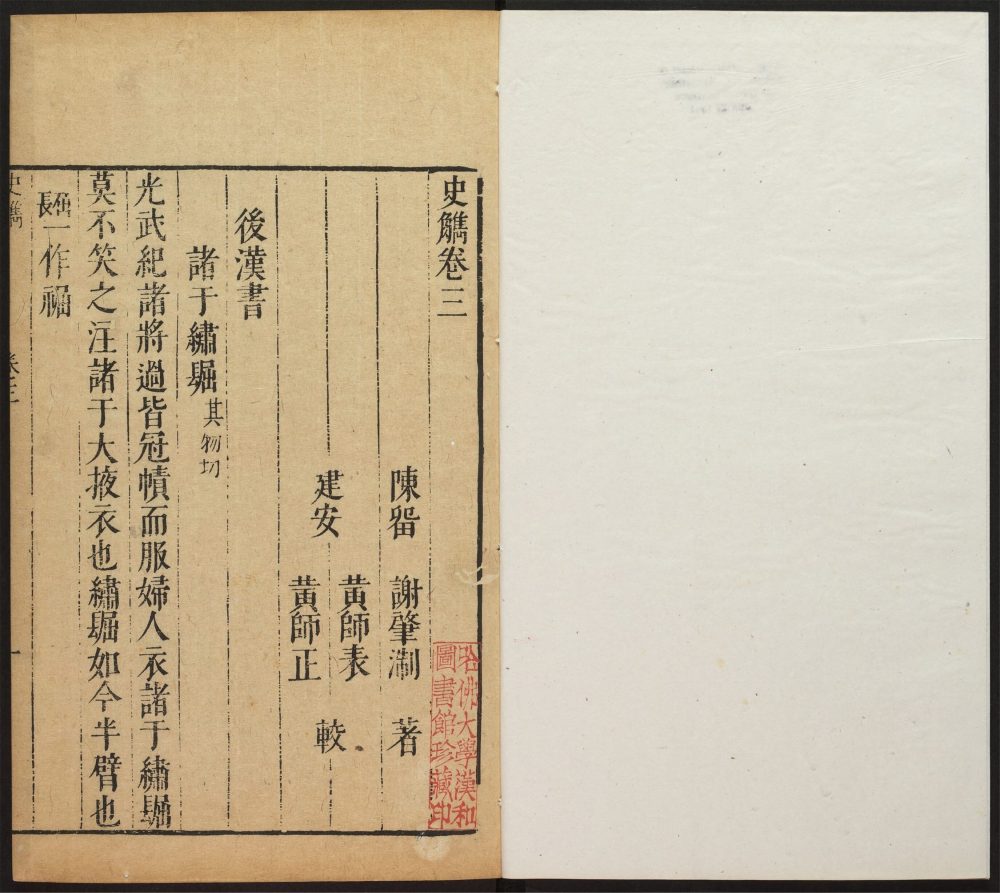 史觽卷三
陳畱 謝肇淛 著
建安 黃師表 較
黃師正
後漢書
諸于繡镼其物切
光武紀諸將過皆冠幘而服婦人衣諸于繡镼
莫不笑之注諸于大掖衣也繡镼如今半臂也
镼一作䘿
史觽 卷三 一
哈佛大學漢和
圖書館珍藏印